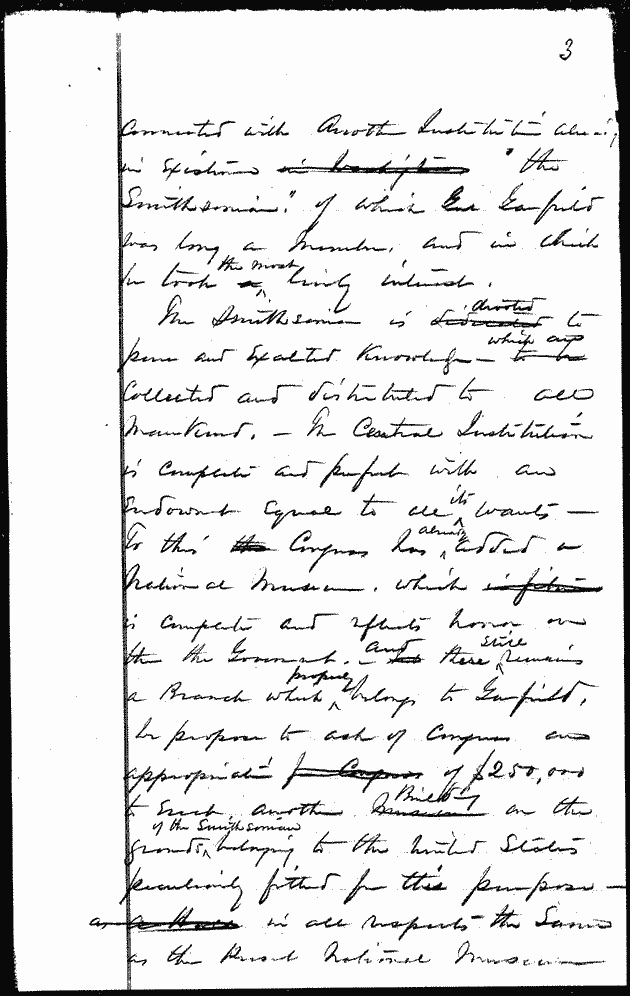 3
connected with another Institution already
in existence in Washington "the
Smithsonian", of which Gen Garfield
was long a member, and in which
he took a the most lively interest.
The Smithsonian is dedicated devoted to
pure and exalted Knowledge — to be which are
collected and distributed to all
Mankind. — The Central Institution
is complete and perfect with an
Endowment equal to all its wants —
To this the Congress has already added a
National Museum, which
is complete and reflects honor on
the Government. — and there still remains
a Branch which properly belongs to Garfield,
We propose to ask of Congress an
appropriation for Congress of $250,000
to Erect another Museum Building on the
grounds of the Smithsonian belonging to the United States
peculiarly fitted for this purpose —
as in all respects the same
as the Present National Museum